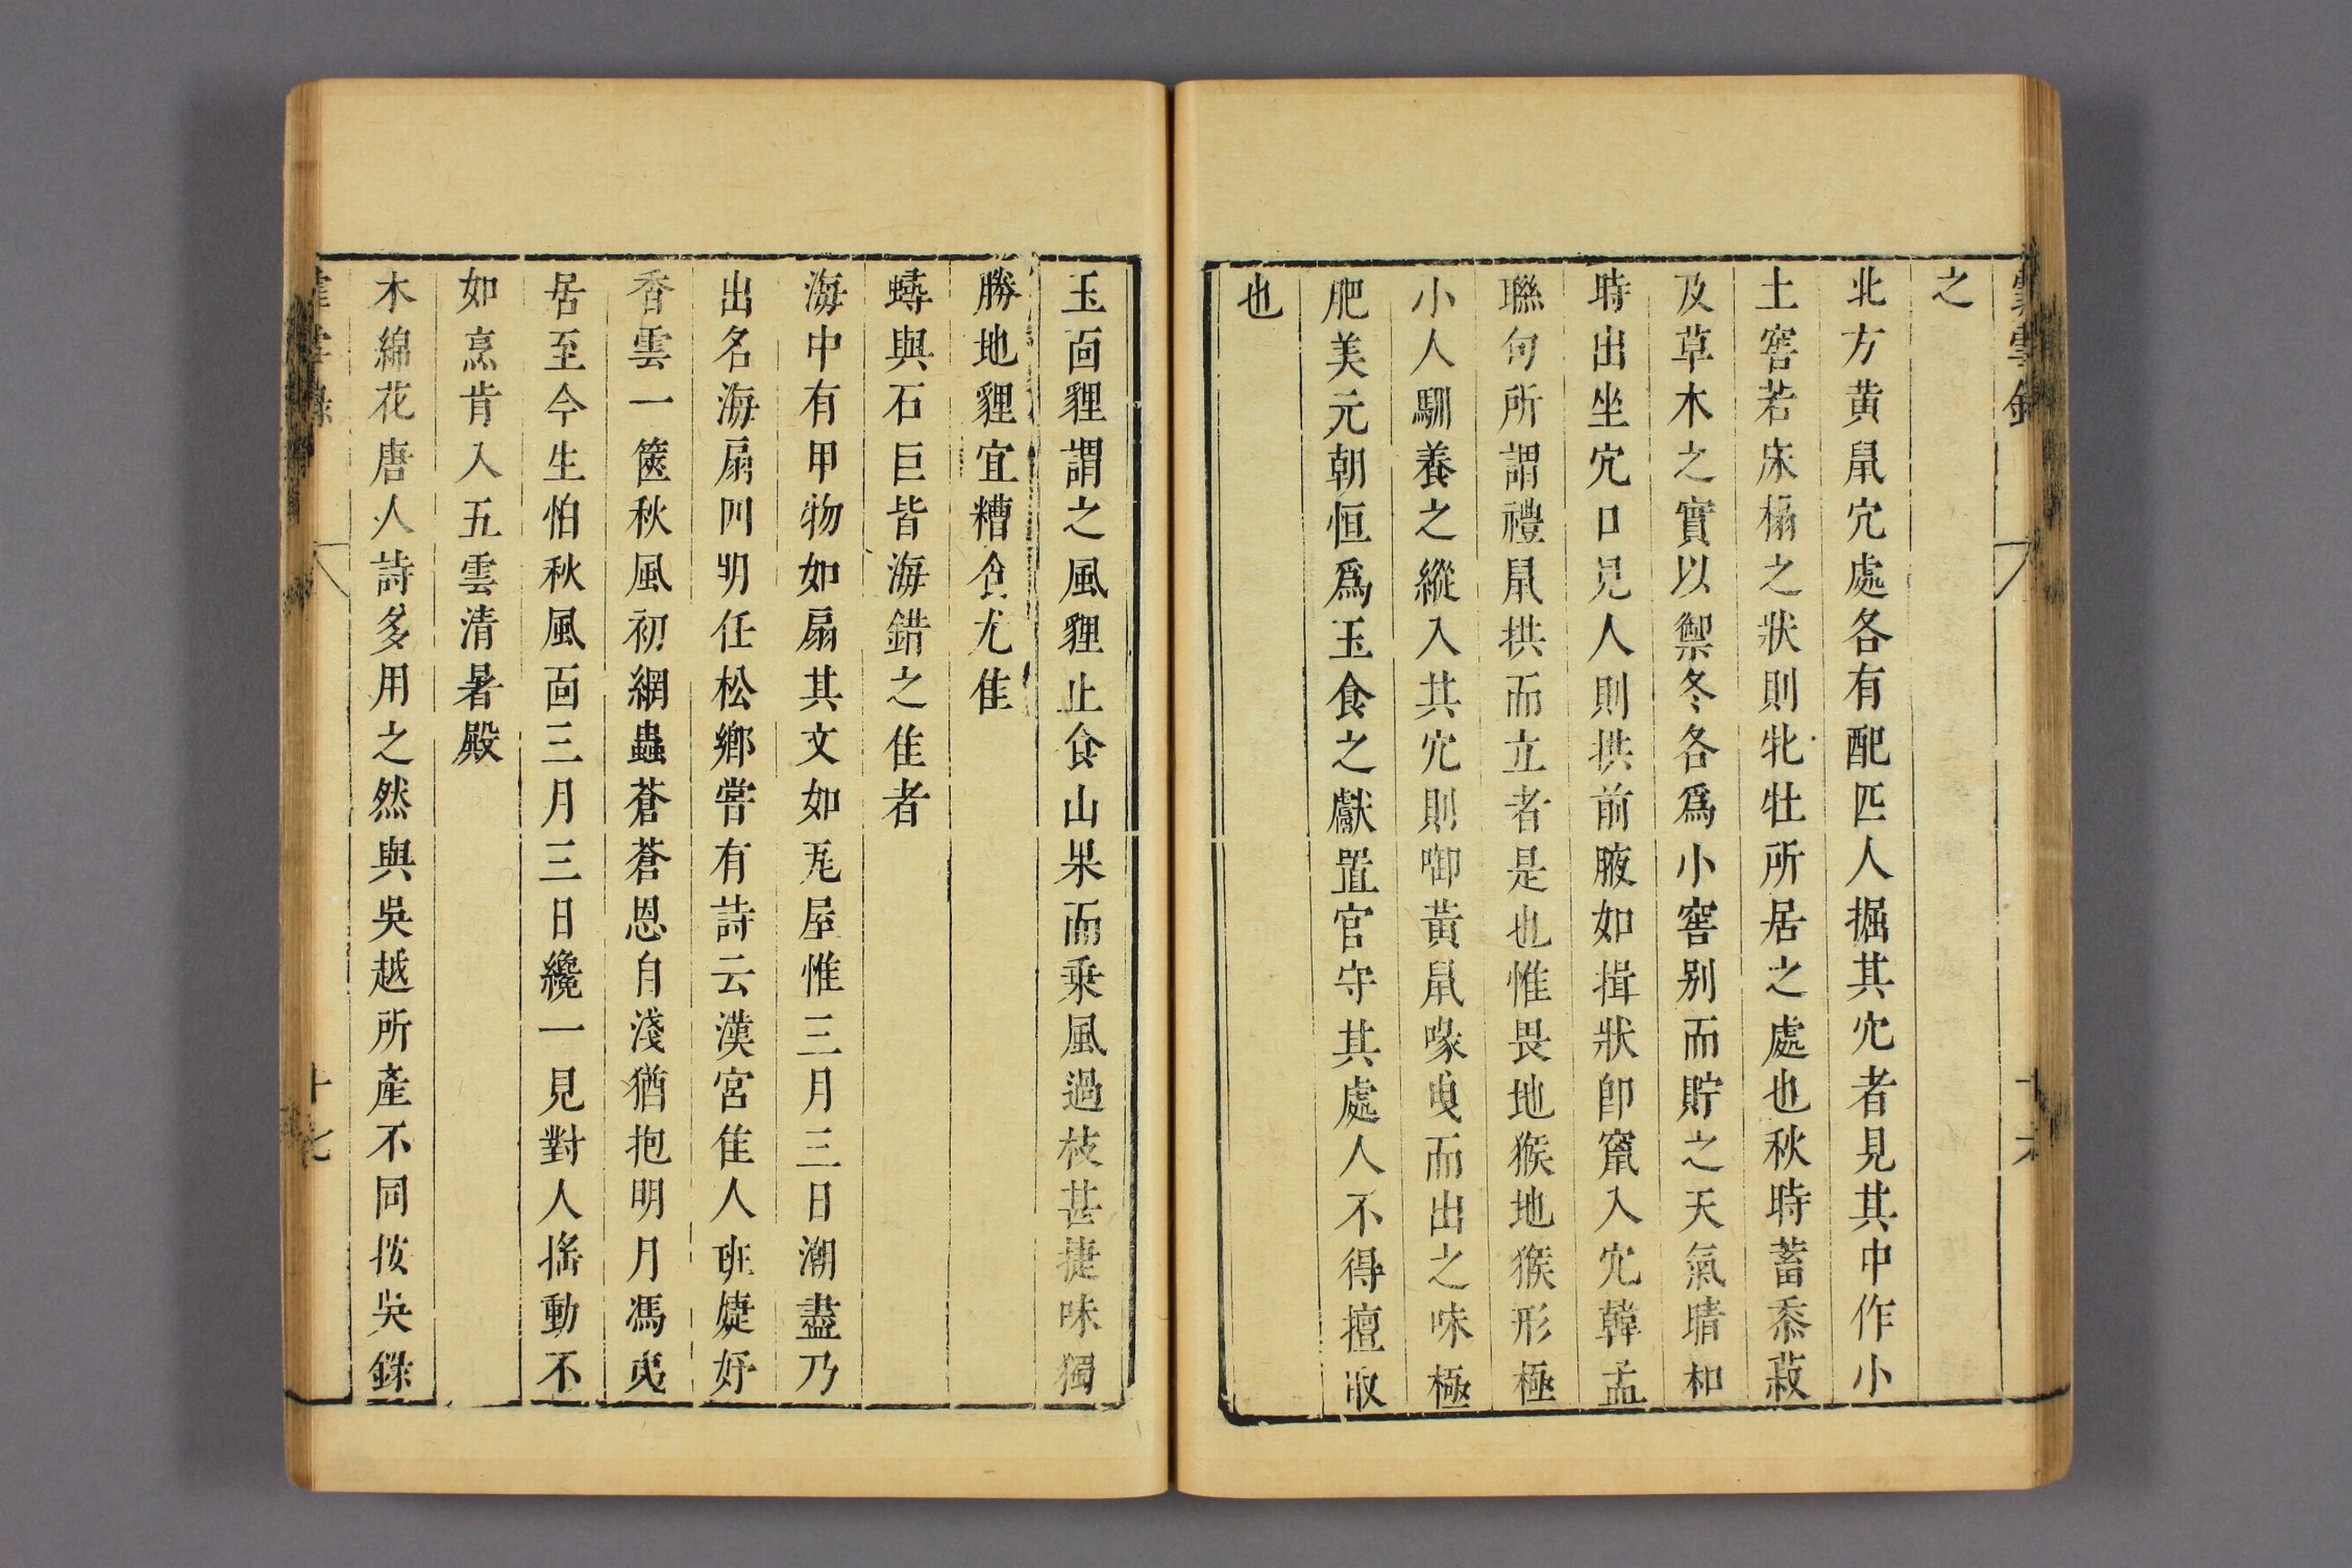 之
北方黄鼠穴處各有配匹人掘其穴者見其中作小
土窖若床榻之狀則牝牡所居之處也秋時蓄黍菽
及草木之實以禦冬各爲小窖别而貯之天氣晴和
時出坐穴口見人則拱前腋如揖狀卽竄入穴韓孟
聯句所謂禮鼠拱而立者是也惟畏地猴地猴形極
小人馴養之縱入其穴則啣黃鼠喙曳而出之味極
肥美元朝恒爲玉食之獻置官守其處人不得擅取
也
玉靣貍謂之風貍止食山果而乗風過枝甚捷味獨
勝地貍宜糟食尤佳
蟳與石巨皆海錯之佳者
海中有甲物如扇其文如瓦屋惟三月三日潮盡乃
出名海扇四明任松鄉嘗有詩云漢宮佳人班婕妤
香雲一篋秋風初網蟲蒼蒼恩自淺猶抱明月馮夷
居至今生怕秋風靣三月三日纔一見對人揺動不
如烹肯入五雲清暑殿
木綿花唐人詩多用之然與吳越所產不同按吳錄
十七